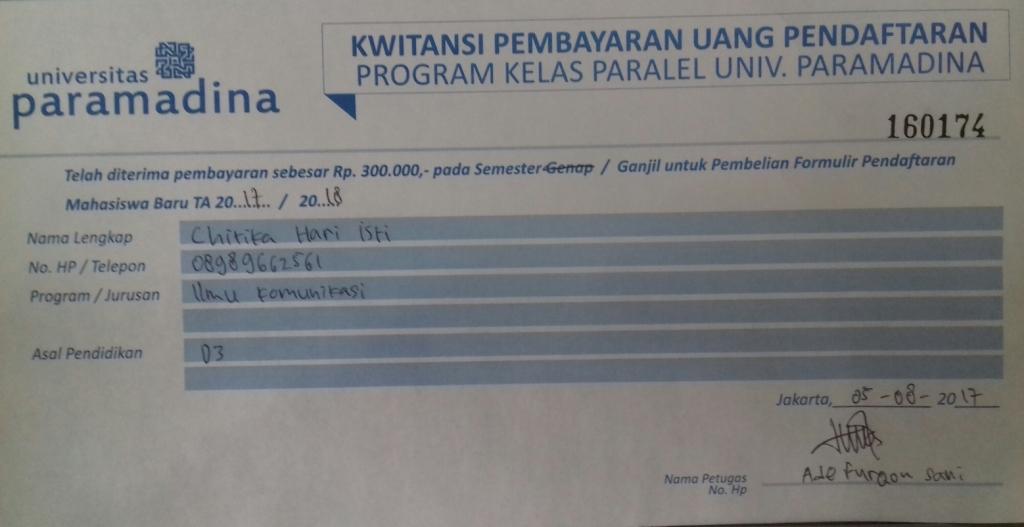 universitas
paramadina
KWITANSI PEMBAYARAN UANG PENDAFTARAN
PROGRAM KELAS PARALEL UNIV. PARAMADINA
160174
Telah diterima pembayaran sebesar Rp. 300.000,- pada Semester Genap / Ganjil untuk Pembelian Formulir Pendaftaran
Mahasiswa Baru TA 20..17.. / 20..18
Nama Lengkap Chitika Hari isti
No. HP / Telepon 08989662561
Program / Jurusan Ilmu komunikasi
Asal Pendidikan D3
Jakarta, 05 - 08 - 2017
Nama Petugas Ade furqon sani
No. Hp